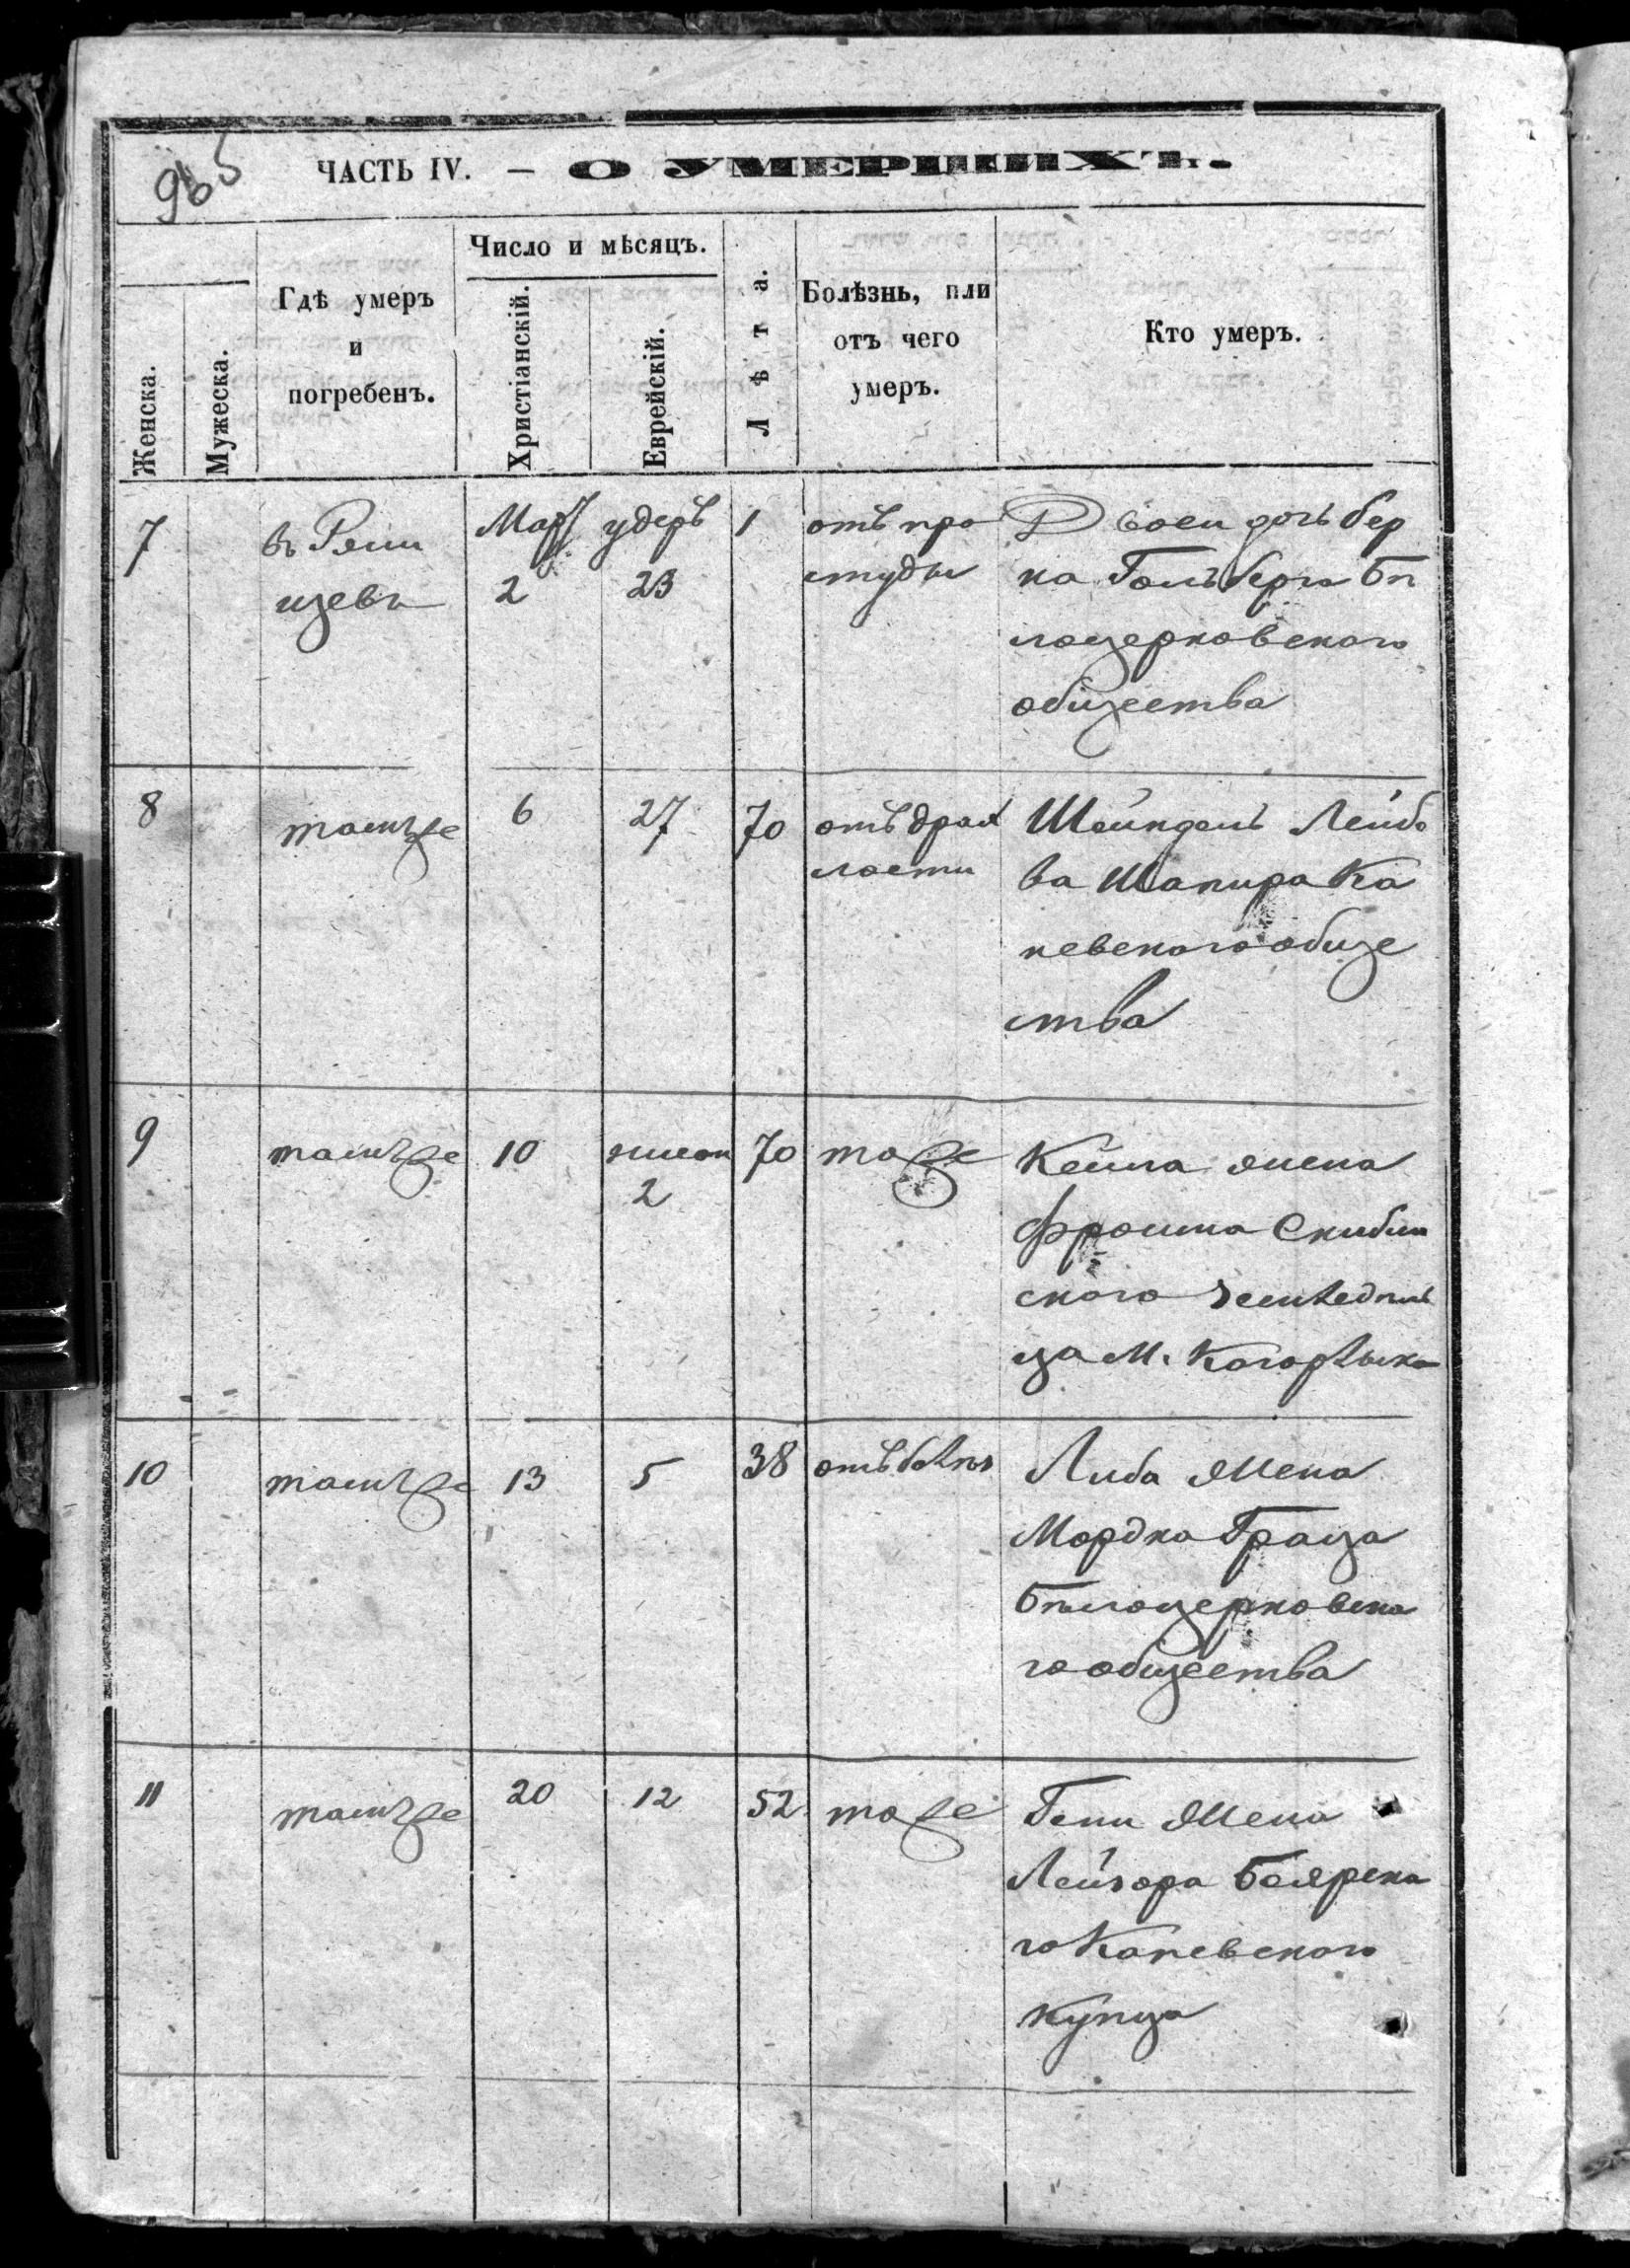 965
ЧАСТЬ IV. — О УМЕРШИХЪ.
Женска.
Мужеска.
Гдѣ умеръ
и
погребенъ.
Число и мѣсяцъ.
Христіанскій.
Еврейскій.
Лѣта.
Болѣзнь, или
отъ чего
умеръ.
Кто умеръ.
7
въ Ржи
щевѣ
Март
2
удеръ
23
1
отъ про
студы
Двоси дочь Бер
ка Гольберга Бѣ
лоцерковского
общества
8
тамъже
6
27
70
отъ драх
лости
Шейндель Лейбо
ва Шапира Ка
невского обще
ства
9
тамъже
10
нисон
2
70
тоже
Кейла жена
Фроима Скибин
ского земледѣль
ца м. Кагарлыка
10
тамъже
13
5
38
отъ
Либа жена
Мордка Граца
Бѣлоцерковска
го общества
11
тамъже
20
12
52
тоже
Гени жена
Лейзора Боярска
го Каневского
купца